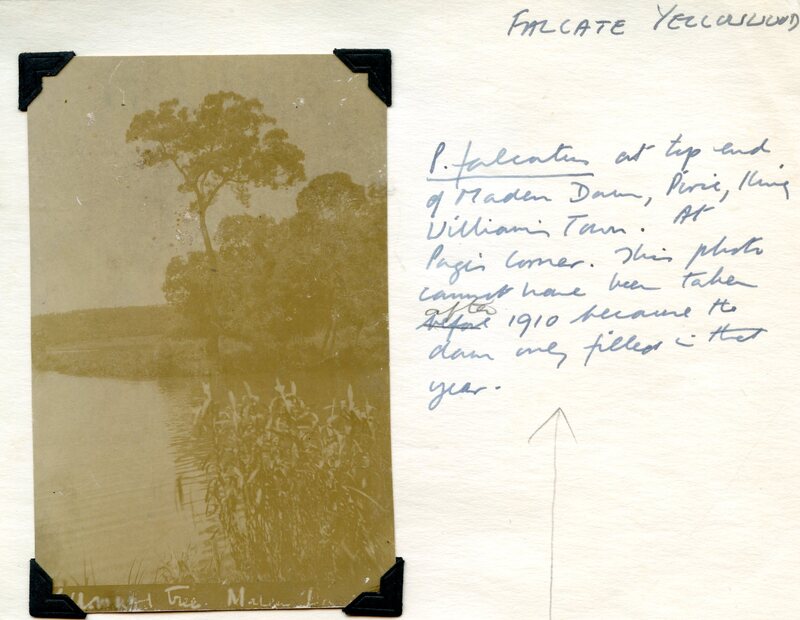 FALCATE YELLOWWOOD
P. falcatus at top end
of Maden Dam, Pirie, King
William's Town. At
Page's Corner. This photo
cannot have been taken
after
before 1910 because the
dam only filled in that
year.
Tree Maden